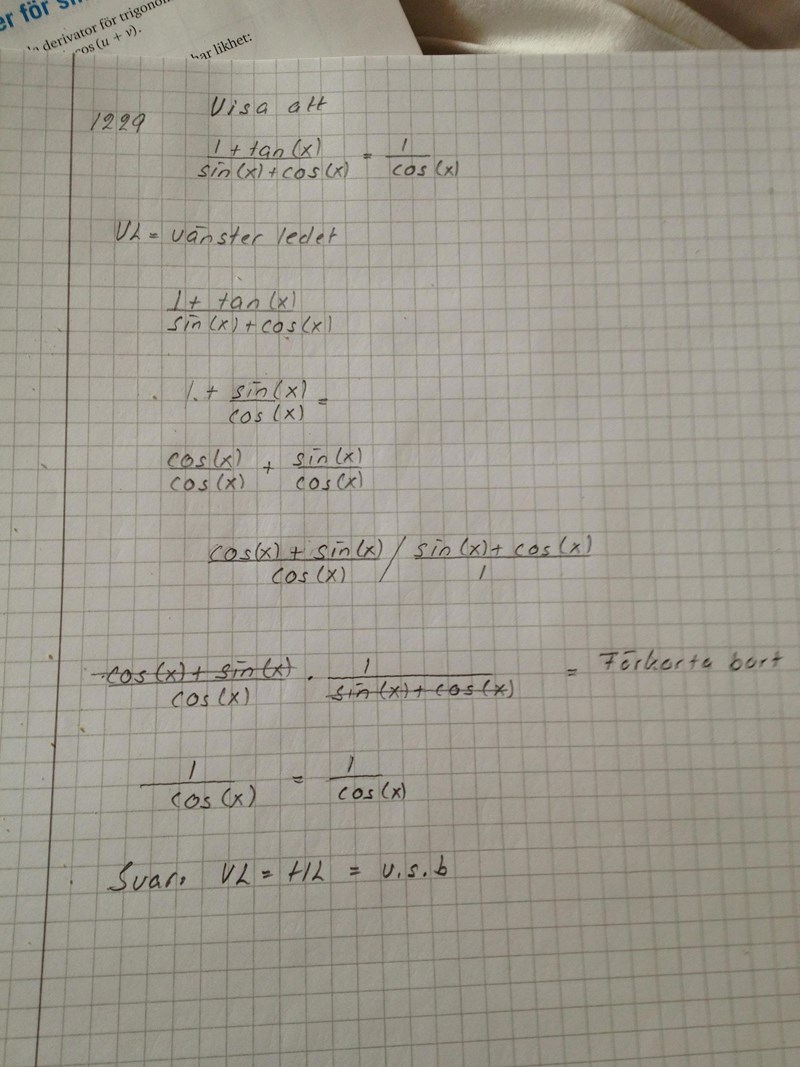 er för
derivator för trigono
cos (u + v).
har likhet:
1229 Visa att
1 + tan(x) / sin(x) + cos(x) = 1 / cos(x)
VL = vänster ledet
1 + tan(x) / sin(x) + cos(x)
1 + sin(x) / cos(x) =
cos(x) / cos(x) + sin(x) / cos(x)
cos(x) + sin(x) / cos(x) / sin(x) + cos(x) / 1
cos(x) + sin(x) / cos(x) · 1 / sin(x) + cos(x) = Förkorta bort
1 / cos(x) = 1 / cos(x)
Svar: VL = HL = v.s.b